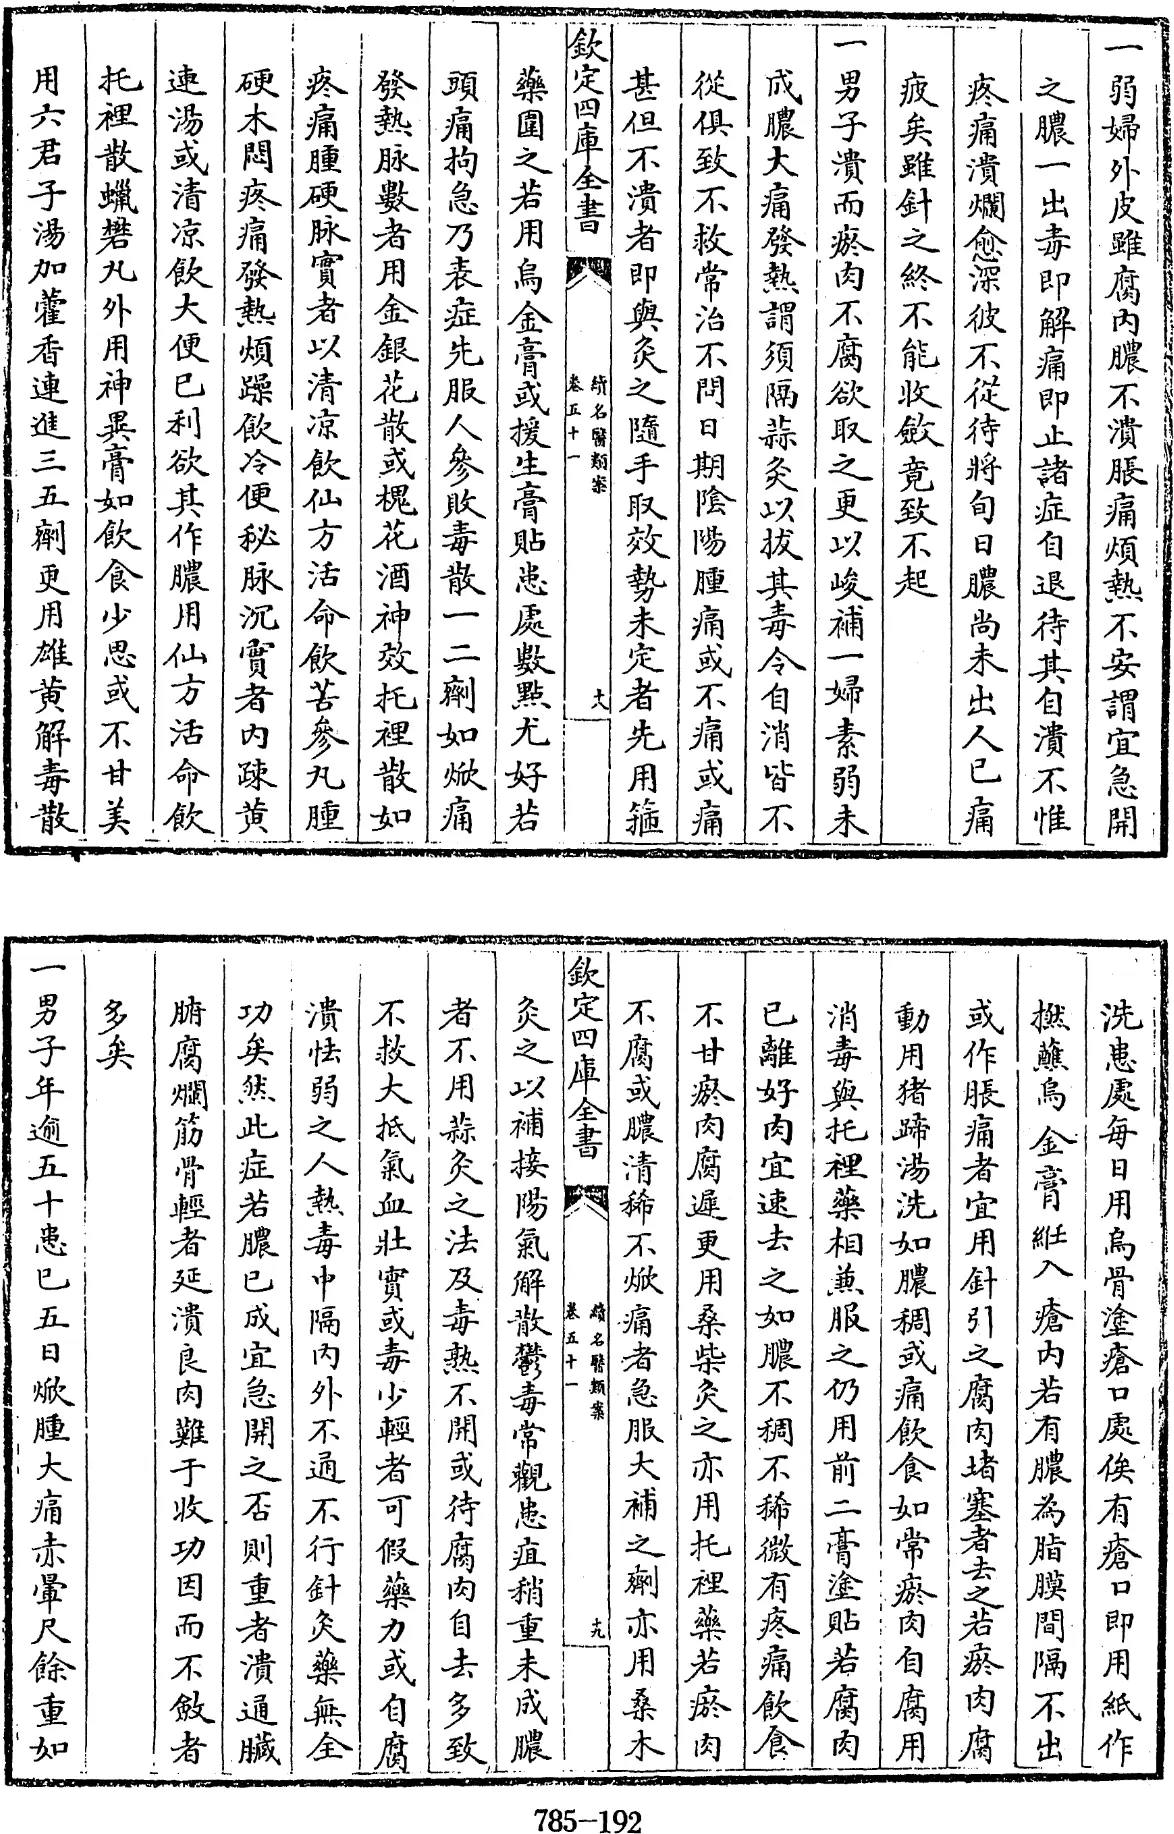 一弱婦外皮雖腐内膿不潰脹痛煩熱不安謂宜急開
之膿一出毒即解痛即止諸症自退待其自潰不惟
疼痛潰爛愈深彼不從待將旬日膿尚未出人已痛
疲矣雖針之終不能收斂竟致不起
一男子潰而瘀肉不腐欲取之更以峻補一婦素弱未
成膿大痛發熱謂須隔蒜灸以拔其毒令自消皆不
從俱致不救常治不問日期陰陽腫痛或不痛或痛
甚但不潰者即與灸之隨手取效勢未定者先用箍
欽定四庫全書
續名醫類案
卷五十一
十八
藥圍之若用烏金膏或援生膏貼患處數點尤好若
頭痛拘急乃表症先服人參敗毒散一二劑如焮痛
發熱脉數者用金銀花散或槐花酒神效托裡散如
疼痛腫硬脉實者以清凉飲仙方活命飲苦參丸腫
硬木悶疼痛發熱煩躁飲冷便秘脉沉實者内疎黄
連湯或清凉飲大便已利欲其作膿用仙方活命飲
托裡散蠟礬丸外用神異膏如飲食少思或不甘美
用六君子湯加藿香連進三五劑更用雄黄解毒散
洗患處每日用烏骨塗瘡口處俟有瘡口即用紙作
撚蘸烏金膏紝入瘡内若有膿為脂膜間隔不出
或作脹痛者宜用針引之腐肉堵塞者去之若瘀肉腐
動用猪蹄湯洗如膿稠或痛飲食如常瘀肉自腐用
消毒與托裡藥相兼服之仍用前二膏塗貼若腐肉
已離好肉宜速去之如膿不稠不稀微有疼痛飲食
不甘瘀肉腐遲更用桑柴灸之亦用托裡藥若瘀肉
不腐或膿清稀不焮痛者急服大補之劑亦用桑木
欽定四庫全書
續名醫類案
卷五十一
十九
灸之以補接陽氣解散鬱毒常觀患疽稍重未成膿
者不用蒜灸之法及毒熟不開或待腐肉自去多致
不救大抵氣血壯實或毒少輕者可假藥力或自腐
潰怯弱之人熱毒中隔内外不通不行針灸藥無全
功矣然此症若膿已成宜急開之否則重者潰通臟
腑腐爛筋骨輕者延潰良肉難于收功因而不斂者
多矣
一男子年逾五十患已五日焮腫大痛赤暈尺餘重如
785-192